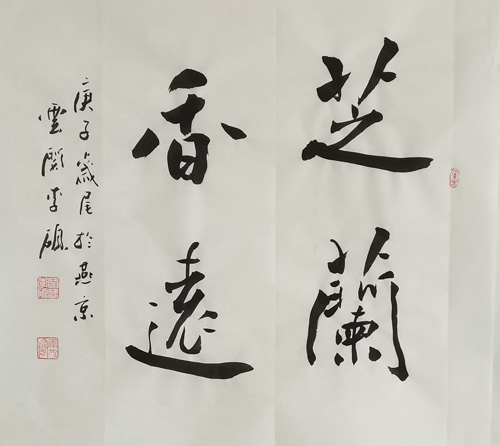 芝蘭
香遠
庚子歲尾於燕京
雲